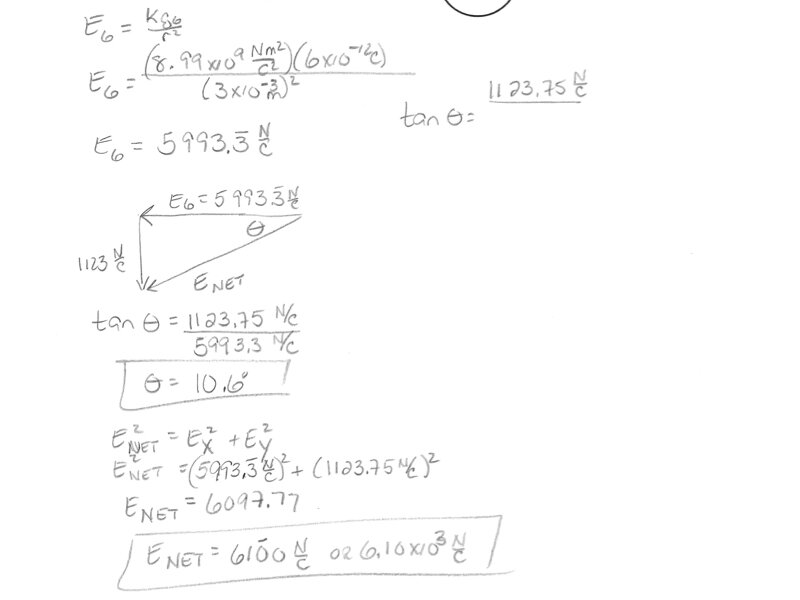 E₆ = kq₆/r²
E₆ = (8.99x10⁹ Nm²/C²)(6x10⁻¹²C)/(3x10⁻³m)²
1123.75 N/C
tan θ =
E₆ = 5993.3̄ N/C
E₆ = 5993.3̄ N/C
θ
1123 N/C
E NET
tan θ = 1123.75 N/C
5993.3 N/C
θ = 10.6°
E²NET = E²X + E²Y
E²NET = (5993.3̄ N/C)² + (1123.75 N/C)²
E NET = 6097.77
E NET = 610̄0 N/C or 6.10x10³ N/C